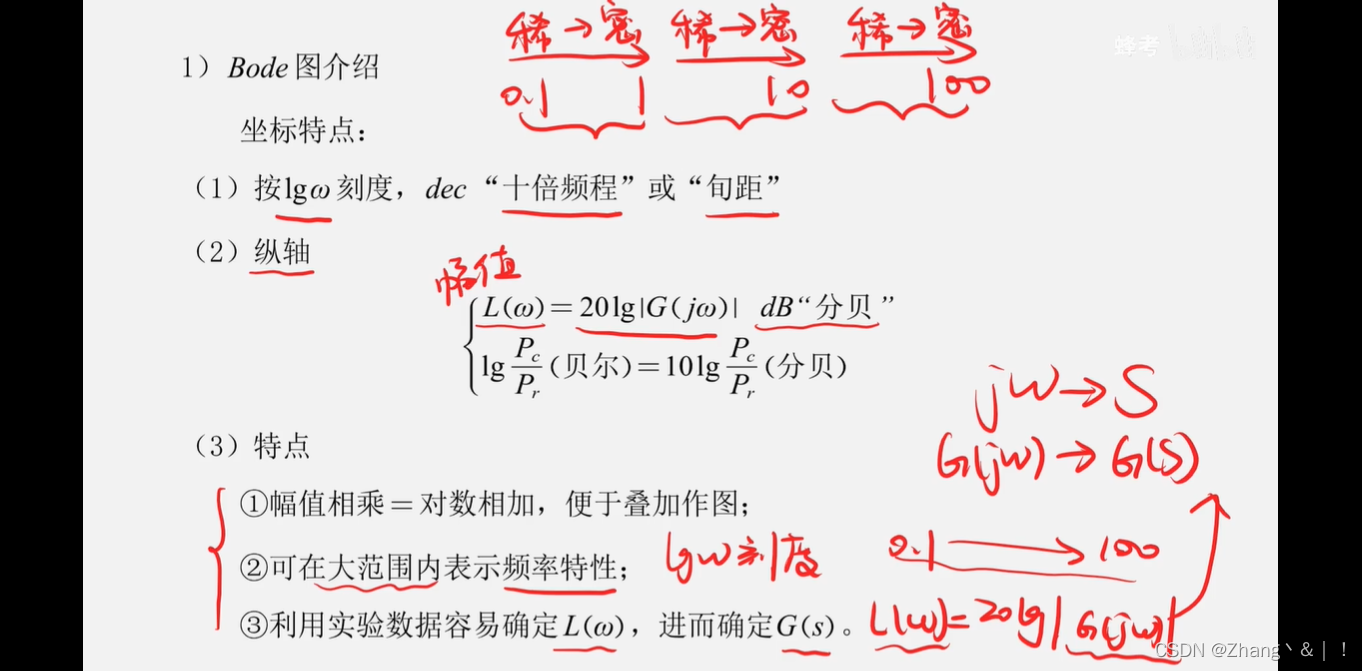 稀→密 稀→密 稀→密
0.1 1 10 100
蜂考
1）Bode图介绍
坐标特点：
（1）按lgω刻度，dec“十倍频程”或“旬距”
（2）纵轴
幅值
L(ω)=20lg|G(jω)| dB“分贝”
lg P_c/P_r (贝尔)=10lg P_c/P_r (分贝)
jω→S
G(jω)→G(S)
（3）特点
①幅值相乘＝对数相加，便于叠加作图；
②可在大范围内表示频率特性；
lgω刻度
0.1 → 100
③利用实验数据容易确定L(ω)，进而确定G(s)。
L(ω)=20lg|G(jω)|
CSDN @Zhang丶&｜！